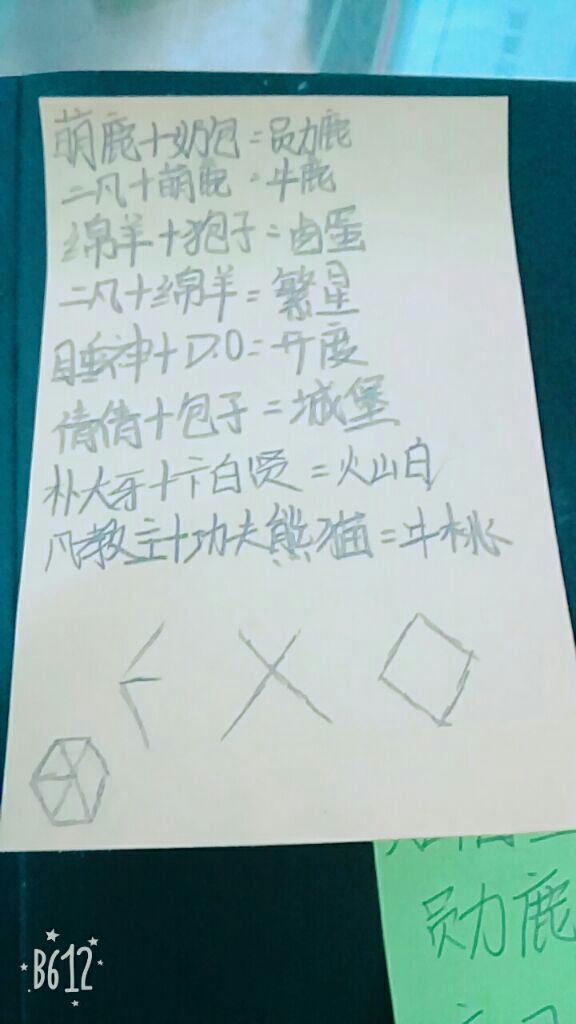 萌鹿十奶包=勋鹿
二凡十萌鹿=牛鹿
绵羊十狍子=卤蛋
二凡十绵羊=繁星
睡神十D.O=开度
倩倩十包子=城堡
朴大牙十卞白贤=火山白
凡教主十功夫熊猫=牛桃
EXO
勋鹿
B612